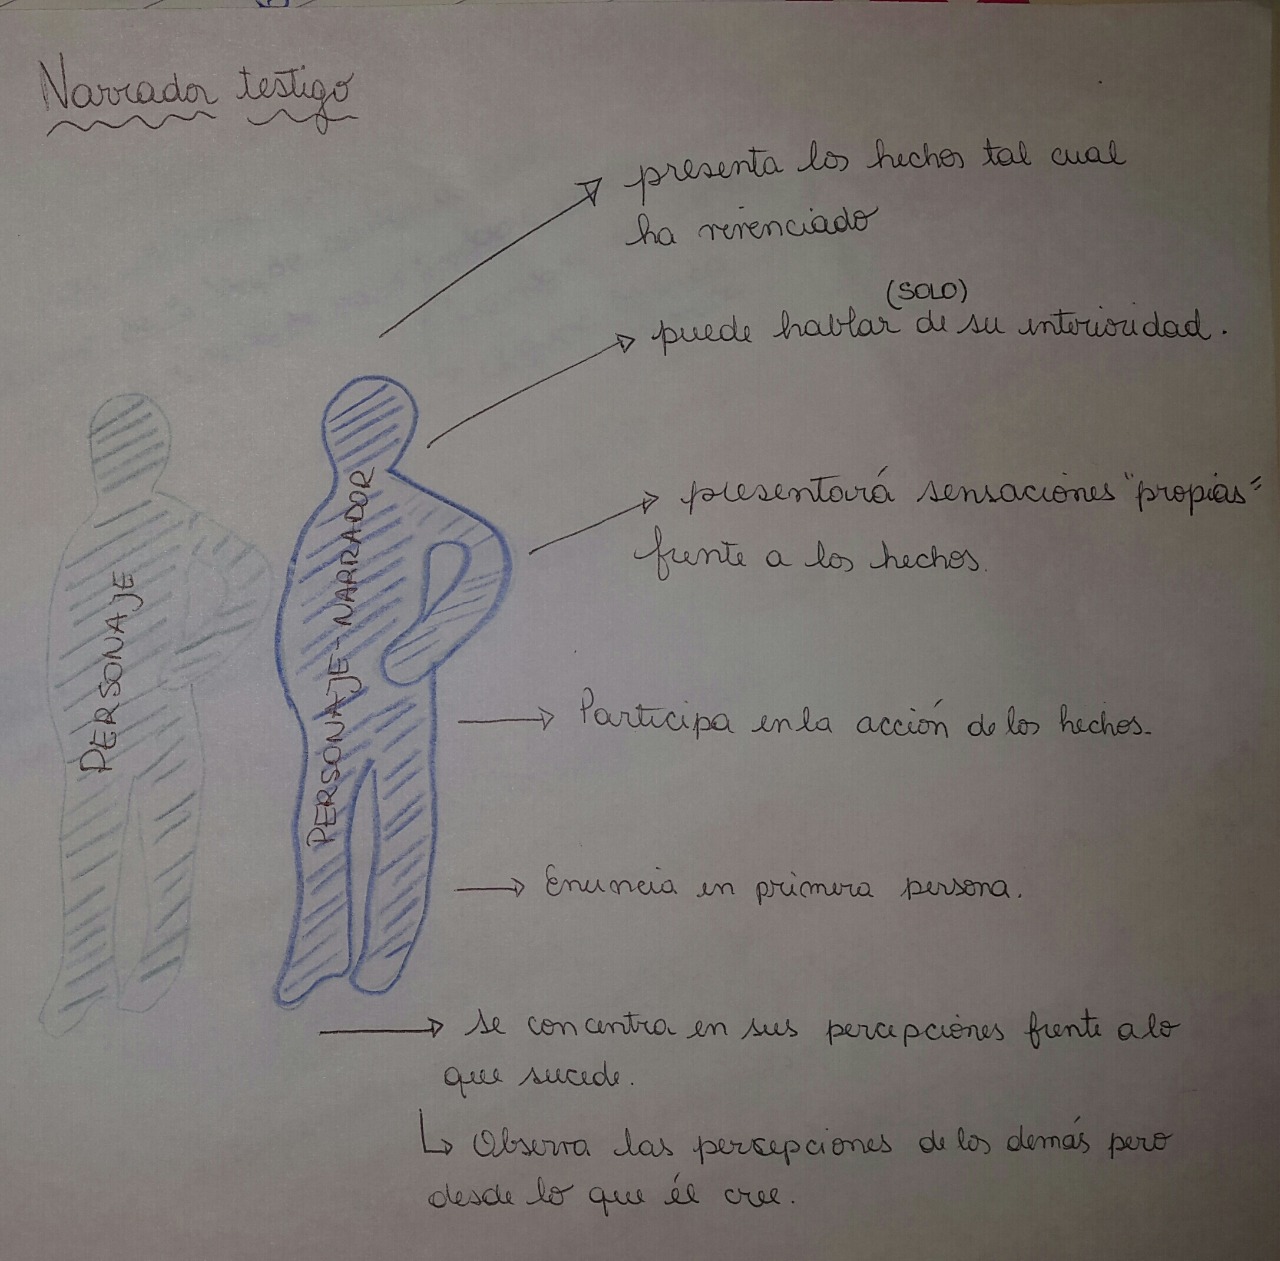 Narrador testigo
presenta los hechos tal cual
ha vivenciado
(SOLO)
puede hablar de su interioridad.
presentará sensaciones "propias"
frente a los hechos.
PERSONAJE
PERSONAJE-NARRADOR
Participa en la acción de los hechos.
Enuncia en primera persona.
Se concentra en sus percepciones frente a lo
que sucede.
Observa las percepciones de los demás pero
desde lo que él cree.